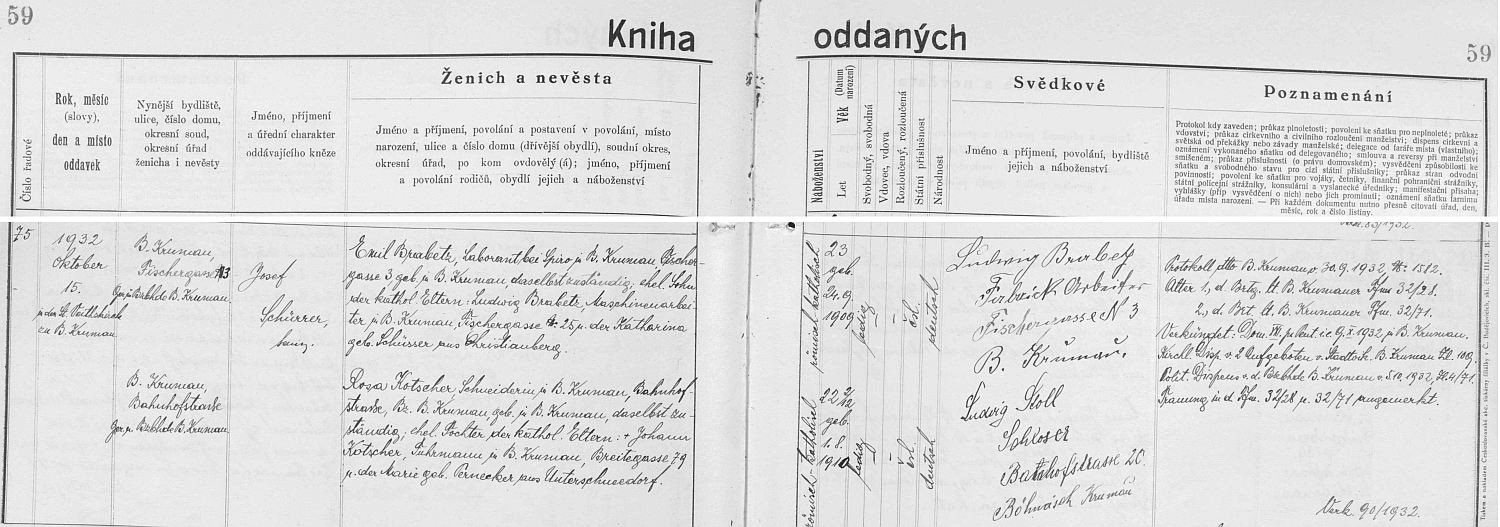 59
Kniha oddaných
59
Číslo řadové
Rok, měsíc
(slovy),
den a místo
oddavek
Nynější bydliště,
ulice, číslo domu,
okresní soud,
okresní úřad
ženicha i nevěsty
Jméno, příjmení
a úřední charakter
oddávajícího kněze
Ženich a nevěsta
Jméno a příjmení, povolání a postavení v povolání, místo
narození, ulice a číslo domu (dřívější obydlí), soudní okres,
okresní úřad, po kom ovdovělý (á); jméno, příjmení
a povolání rodičů, obydlí jejich a náboženství
Náboženství
Věk (Datum narození)
Let
Svobodný, svobodná
Vdovec, vdova
Rozloučený, rozloučená
Státní příslušnost
Národnost
Svědkové
Jméno a příjmení, povolání, bydliště
jejich a náboženství
Poznamenání
Protokol kdy zaveden; průkaz plnoletosti; povolení ke sňatku pro neplnoleté; průkaz
vdovství; průkaz církevního a civilního rozloučení manželství; dispens církevní a
světská od překážky nebo závady manželské; delegace od faráře místa (vlastního);
oznámení vykonaného sňatku od delegovaného; smlouva a reversy při manželství
smíšeném; průkaz příslušnosti (o právu domovském); vysvědčení způsobilosti ke
sňatku a svobodného stavu pro cizí státní příslušníky; průkaz stran odvodní
povinnosti; povolení ke sňatku pro vojáky, četníky, finanční pohraniční strážníky,
státní policejní strážníky, konsulární a vyslanecké úředníky; manifestační přísaha;
vyhlášky (příp vysvědčení o nich) nebo jich prominutí; oznámení sňatku farnímu
úřadu místa narození. — Při každém dokumentu nutno přesně citovati úřad, den,
měsíc, rok a číslo listiny.
75
1932
Oktober
15.
in der St. Veitskirche
zu B. Krumau
B. Kruman,
Fischergasse 113
Ger. u. Bezbhde B. Kruman.
B. Kruman,
Bahnhofstraße
Ger. u. Bezbhde B. Kruman
Josef
Schürrer,
Emil Brabetz, Laborant bei Spiro in B. Kruman, Fischer-
gasse 3 geb. in B. Kruman daselbst zuständig, ehel. Sohn
der kathol. Eltern: Ludwig Brabetz, Maschinenarbei-
ter in B. Kruman, Fischergasse 25 u. der Katharina
geb. Schüsser aus Christianberg.
Rosa Kötscher, Schneiderin in B. Kruman, Bahnhof-
straße, Bz. B. Kruman, geb. in B. Kruman, daselbst zu-
ständig, ehel. Tochter der kathol. Eltern: + Johann
Kötscher, Fuhrmann in B. Kruman, Breitegasse 79
u. der Marie geb. Pernecker aus Unterschneedorf.
römisch katholisch
23
geb.
24.9.
1909
ledig
čsl.
deutsch
römisch-katholisch
22 2/12
geb.
1.8.
1910
ledig
čsl.
deutsch
Ludwig Brabetz
Fabriks Arbeiter
Fischergasse N 3
B. Krumau.
Ludwig Stoll
Schloser
Bahnhofstrasse 20.
Böhmisch Krumau
83/1932.
Protokoll dto B. Kruman v. 30.9.1932, 1512.
Atter 1, d. Brtg. lt. B. Krumauer Tfm. 32/28.
2, d. Brt. lt. B. Krumauer Tfm. 32/71.
Verkündet: Dom. p. Pent. i.e. 9.X.1932, in B. Kruman.
Kirchl. Disp. v. 2 Aufgeboten v. Stadtdek. B. Kruman Zl. 109.
Polit. Dispens v. d. Bezbhde B. Kruman v. 5.10.1932, 4/71.
Trauung in d. Tfm. 32/28 u. 32/71 angemerkt.
Verk. 90/1932.